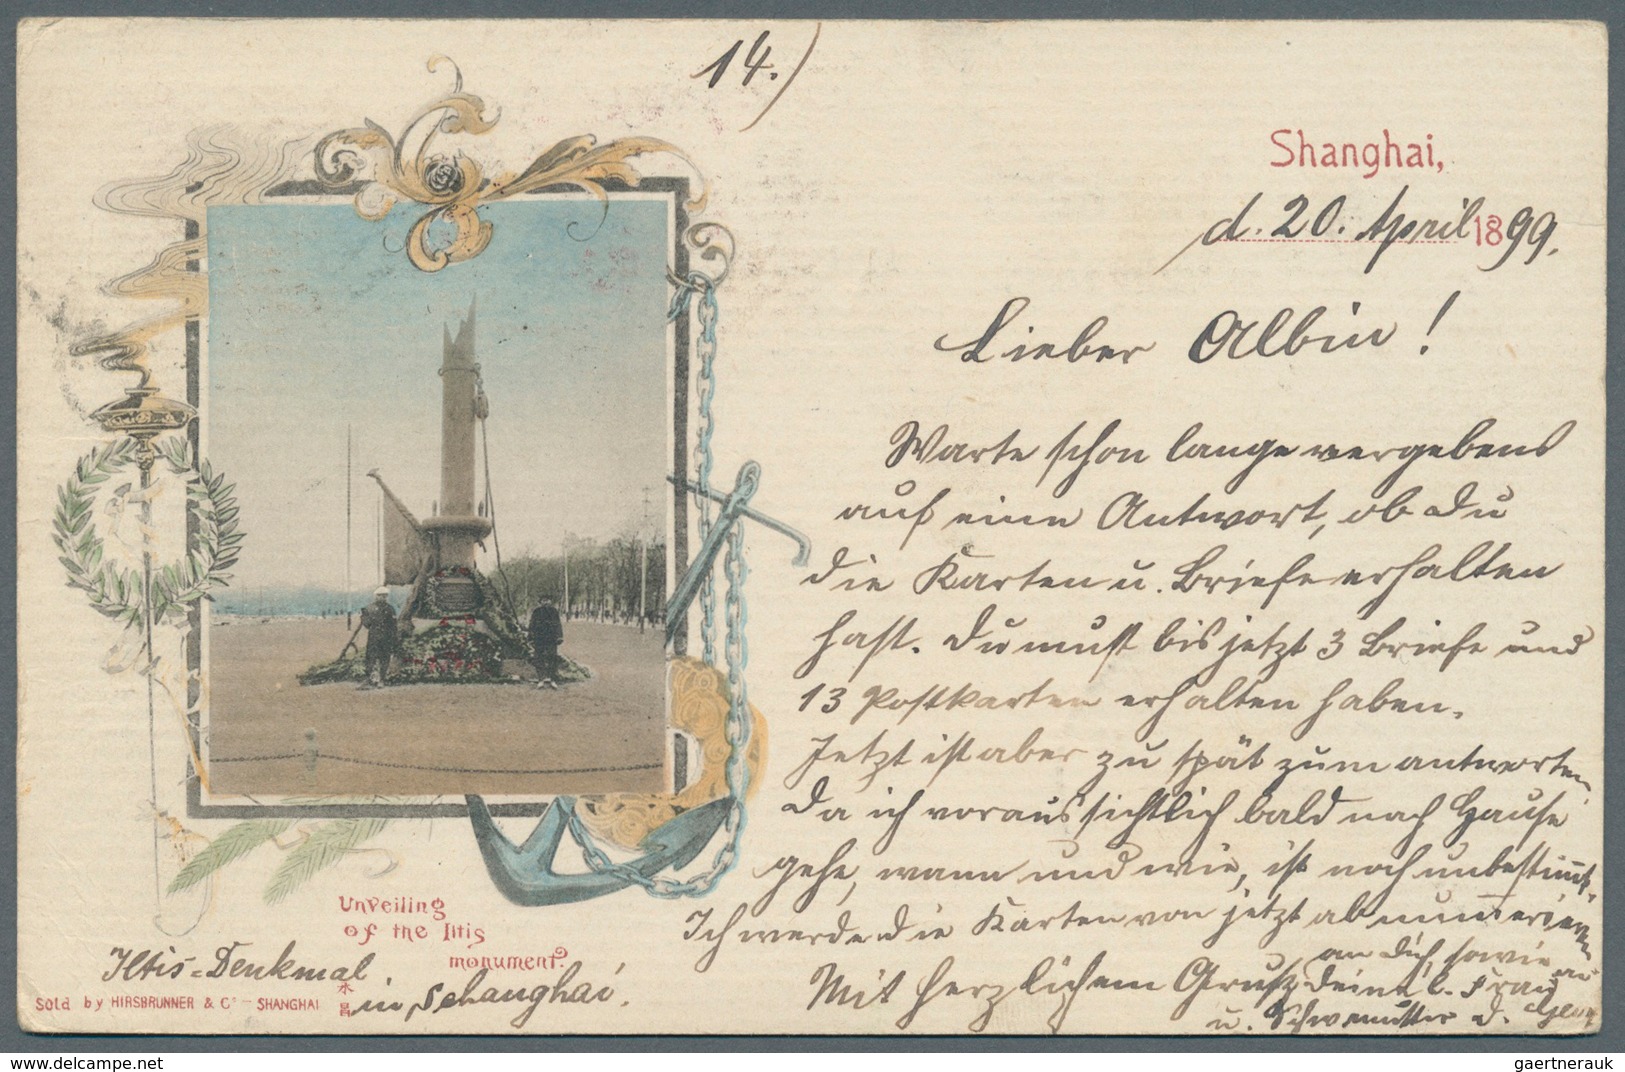 14.)
Shanghai,
d. 20. April 1899.
Lieber Albin!
Warte schon lange vergebens
auf eine Antwort, ob Du
die Karten u. Briefe erhalten
hast. Du mußt bis jetzt 3 Briefe und
13 Postkarten erhalten haben.
Jetzt ist aber zu spät zum antworten,
da ich voraussichtlich bald nach Hause
gehe, wann und wie, ist noch unbestimmt.
Ich werde die Karten von jetzt ab nummerieren
Mit herzlichem Gruß an Dich, sowie an
Deine l. Frau
u. Schwemutter D.
Unveiling
of the Iltis
monument.
Iltis=Denkmal
in Schanghai.
Sold by HIRSBRUNNER & Co – SHANGHAI
gaertnerauk